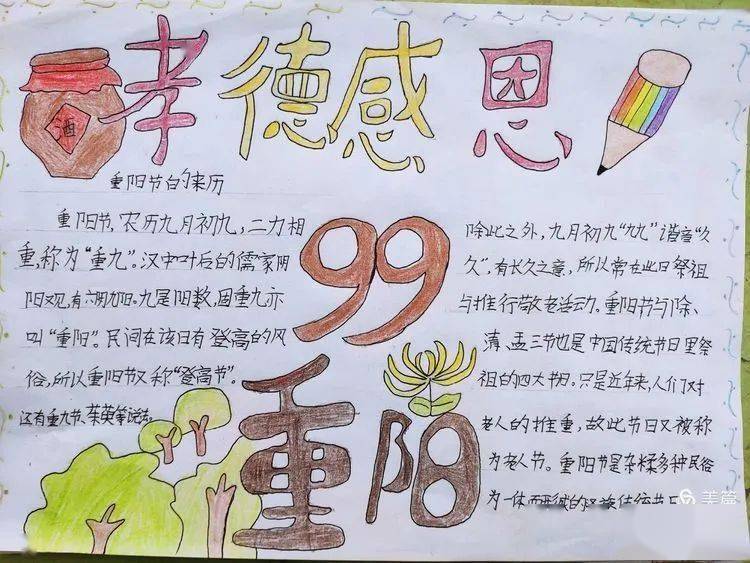 孝德感恩
酒
重阳节白的来历
重阳节,农历九月初九,二力相
重,称为“重九”。汉中叶后的儒家阴
阳观,有六阴九阳。九是阳数,固重九亦
叫“重阳”。民间在该日有登高的风
俗,所以重阳节又称“登高节”。
还有重九节、茱萸等说法。
99
重阳
除此之外,九月初九“九九”谐音“久
久”,有长久之意,所以常在此日祭祖
与推行敬老活动。重阳节与除、
清、盂三节也是中国传统节日里祭
祖的四大节日。只是近年来,人们对
老人的推重,故此节日又被称
为老人节。重阳节是杂糅多种民俗
为一体而形成的汉族传统节日
美篇